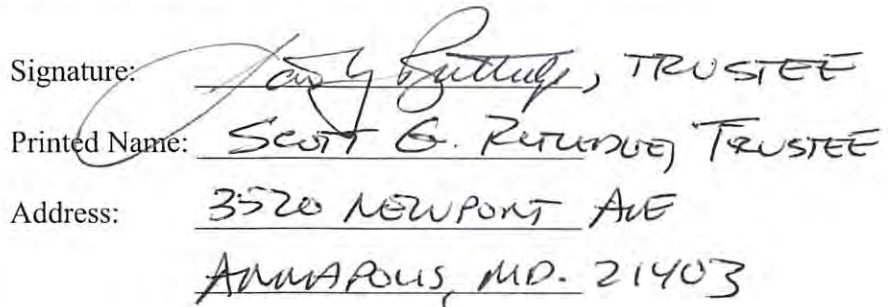 Signature: , TRUSTEE
Printed Name: SCOTT G. RUTLEDGE, TRUSTEE
Address: 3520 NEWPORT AVE
ANNAPOLIS, MD. 21403